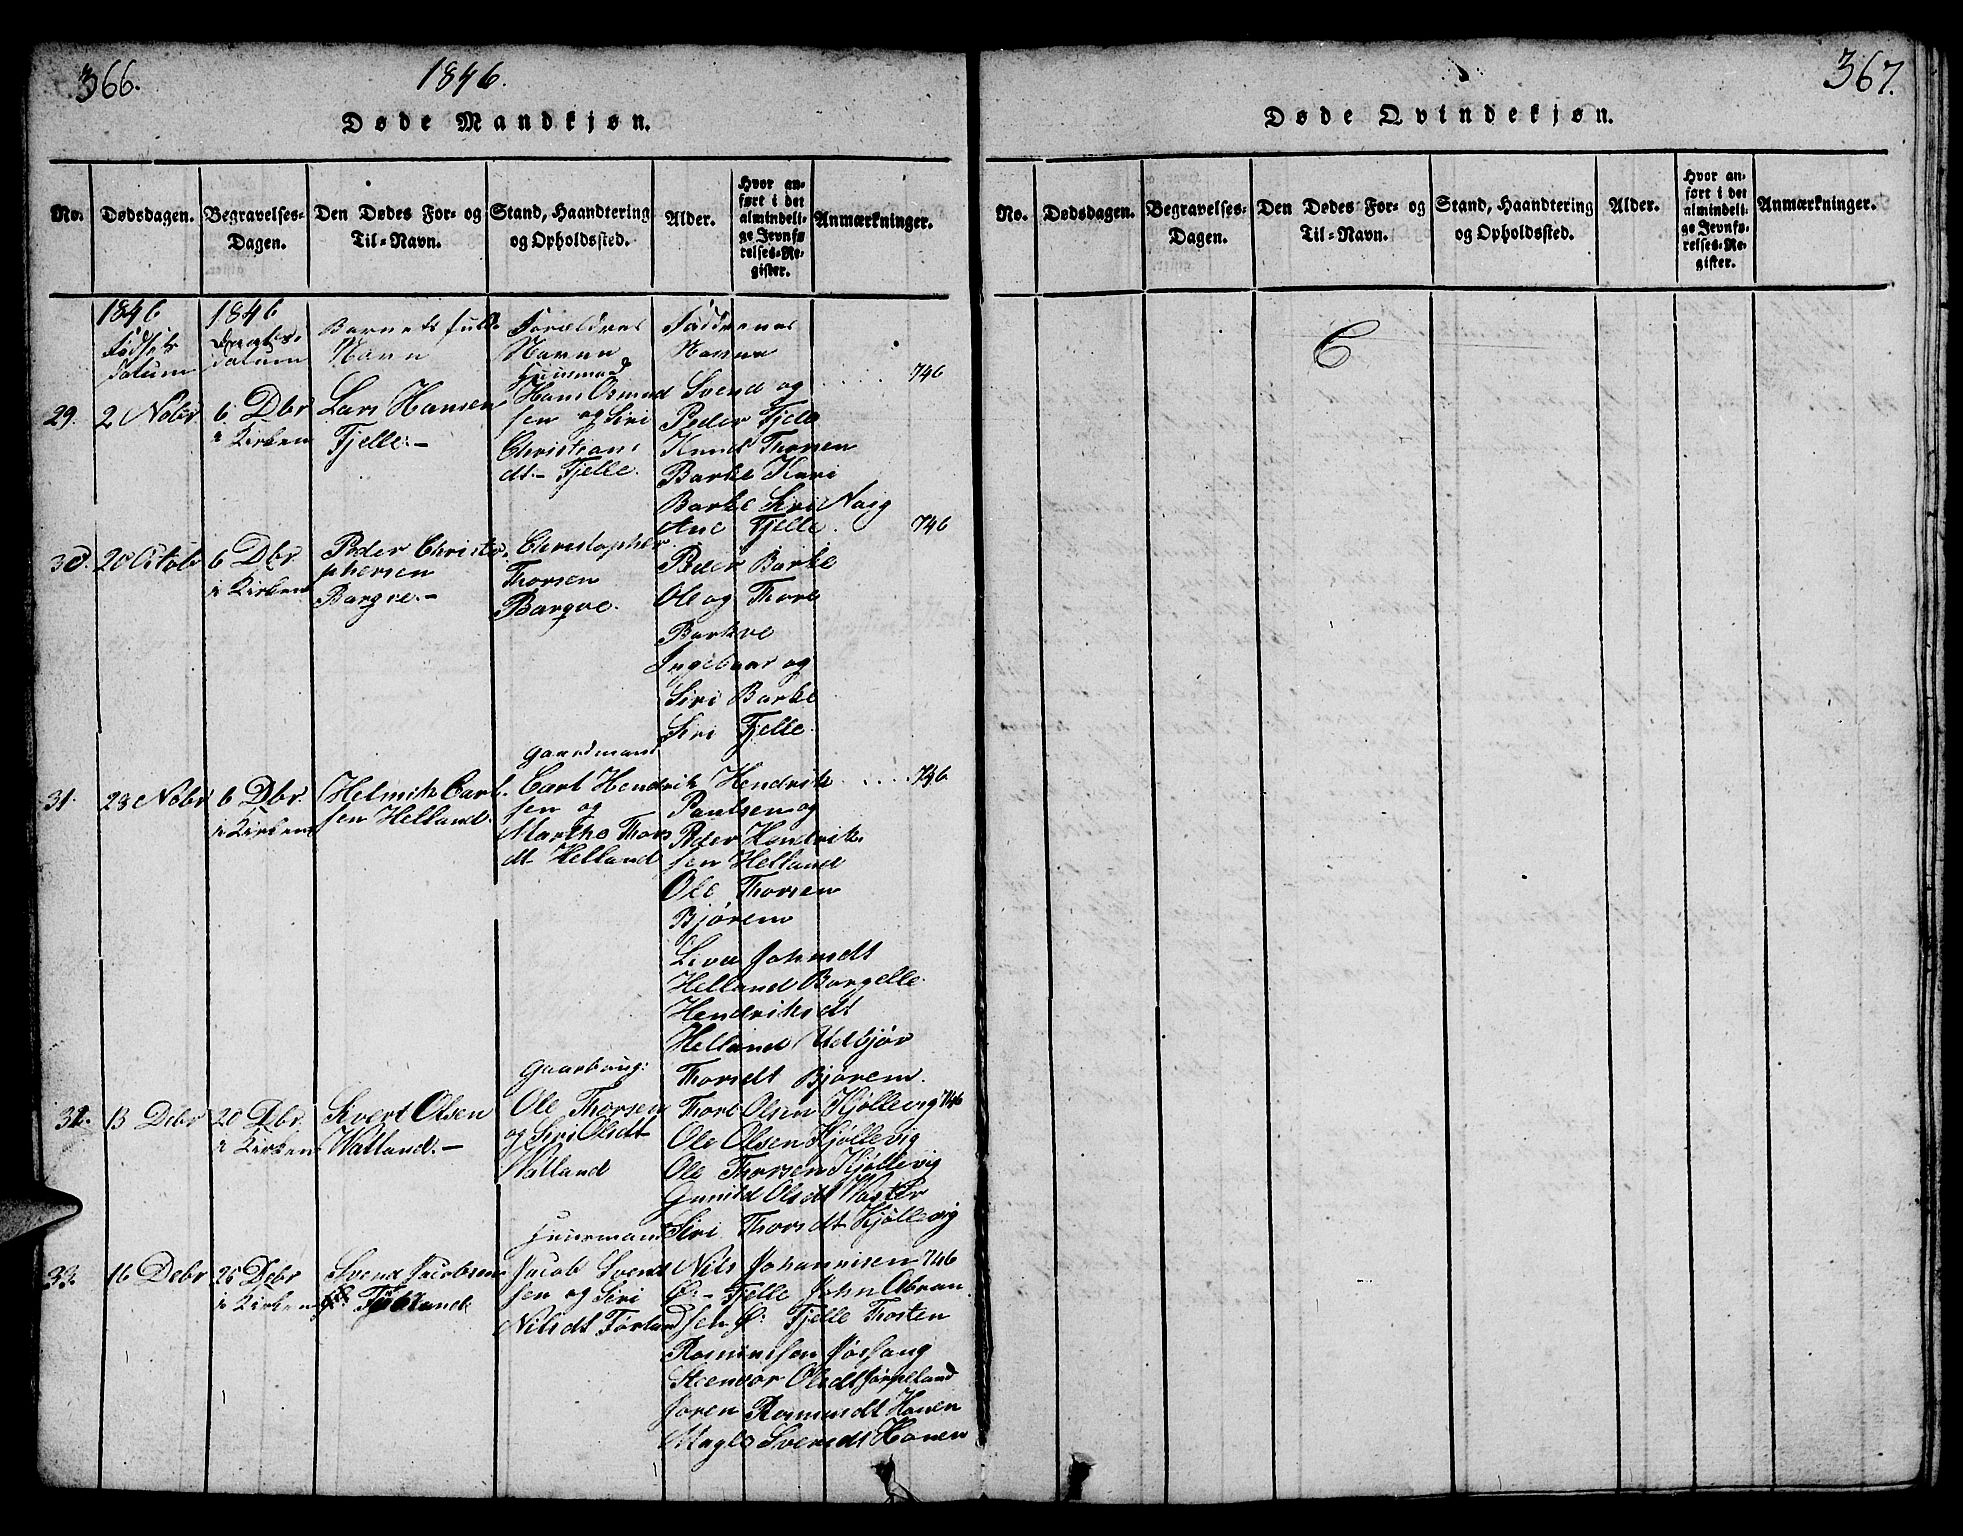 366.
1846.
Døde Mandkjøn.
No.
Dødsdagen.
Begravelses-
Dagen.
Den Dødes For- og
Til-Navn.
Stand, Haandtering
og Opholdssted.
Alder.
Hvor an-
ført i det
almindeli-
ge Jevnfø
relses-Re-
gister.
Anmærkninger.
1846
Fødsels
datum
1846
datum
Barnets fulde
Navn
Forældres
Navne
Faddernes
Navne
29.
2 Nobr
6 Dbr
i Kirken
Lars Hansen
Fjelle.-
Huusmand
Hans Osmund
sen og Siri
Christians
dt.- Fjelle.
Svend og
Peder Fjelle
Knud Thorsen
Barke Kari
Barke Siri Naig
Ane Fjelle.
746
30.
20 Octobr
6 Dbr
i Kirken
Peder Christo
phersen
Bargve.-
Christopher
Thorsen
Bargve.
Peder Barke
Ole og Thore
Barkve
Ingebaar og
Siri Barke
Siri Fjelle.
746
31.
23 Nobr
6 Dbr.
i Kirken
Helmik Carl
sen Helland.
Gaardmand
Carl Hendrik
sen og
Martha Thors
dt. Helland
Hendrik
Paulsen og
Peder Hendrik
sen Helland
Ole Thorsen
Bjørem
Liva Johnsdt
Helland Borgelle
Hendriksdt
Helland Udbjør
Thorsdt Bjørem.
746
32.
13 Debr
20 Dbr.
i Kirken
Sivert Olsen
Watland.-
Gaardbrug:
Ole Thorsen
og Siri Olsdt
Watland
Thore Olsen Kjøllevig
Ole Olsen Kjøllevig
Ole Thorsen Kjøllevig
Gunild Olsdt Waster
Siri Thorsdt Kjøllevig
746
33.
16 Debr
26 Debr
i Kirken
Svend Jacobsen
Huusmand
Jacob Svend
sen og Siri
Nilsdt Førland
Nils Johannisen
Ø.- Fjelle John Abram
sen Ø: Fjelle Thosten
Rasmussen Jøssang
Steenvor Olsdt Jørpeland
Søren Rasmusdt Haven
Magla Svendsdt Haven
746
367.
Døde Qvindekjøn.
No.
Dødsdagen.
Begravelses-
Dagen.
Den Dødes For- og
Til-Navn.
Stand, Haandtering
og Opholdssted.
Alder.
Hvor an-
ført i det
almindeli-
ge Jevnfø-
relses-Re-
gister.
Anmærkninger.